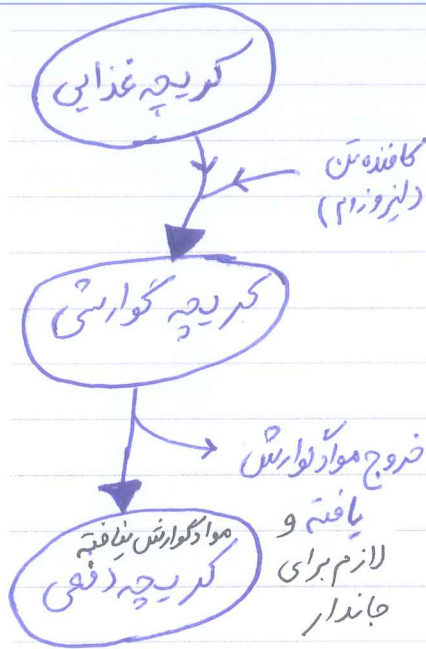 کریچه غذایی
کافنده تن
(لیزوزوم)
کریچه گوارشی
خروج مواد گوارش
یافته و
لازم برای
جاندار
مواد گوارش نیافته
کریچه دفعی